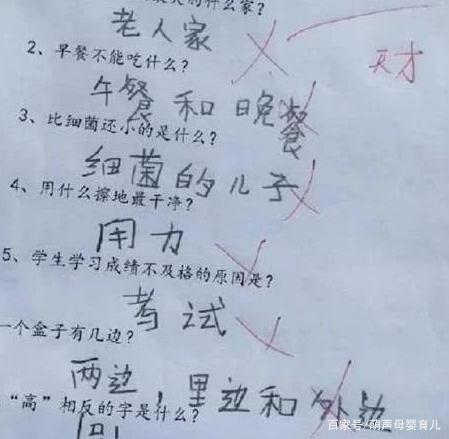 什么家？
老人家
天才
2、早餐不能吃什么？
午餐和晚餐
3、比细菌还小的是什么？
细菌的儿子
4、用什么擦地最干净？
用力
5、学生学习成绩不及格的原因是？
考试
一个盒子有几边？
两边，里边和外边
“高”相反的字是什么？
百家号/萌声母婴育儿